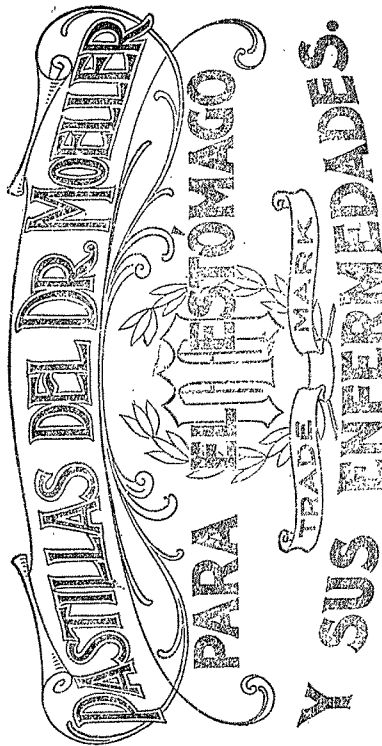 PASTILLAS DEL DR. MOELLER
PARA EL ESTÓMAGO
TRADE MARK
Y SUS ENFERMEDADES.